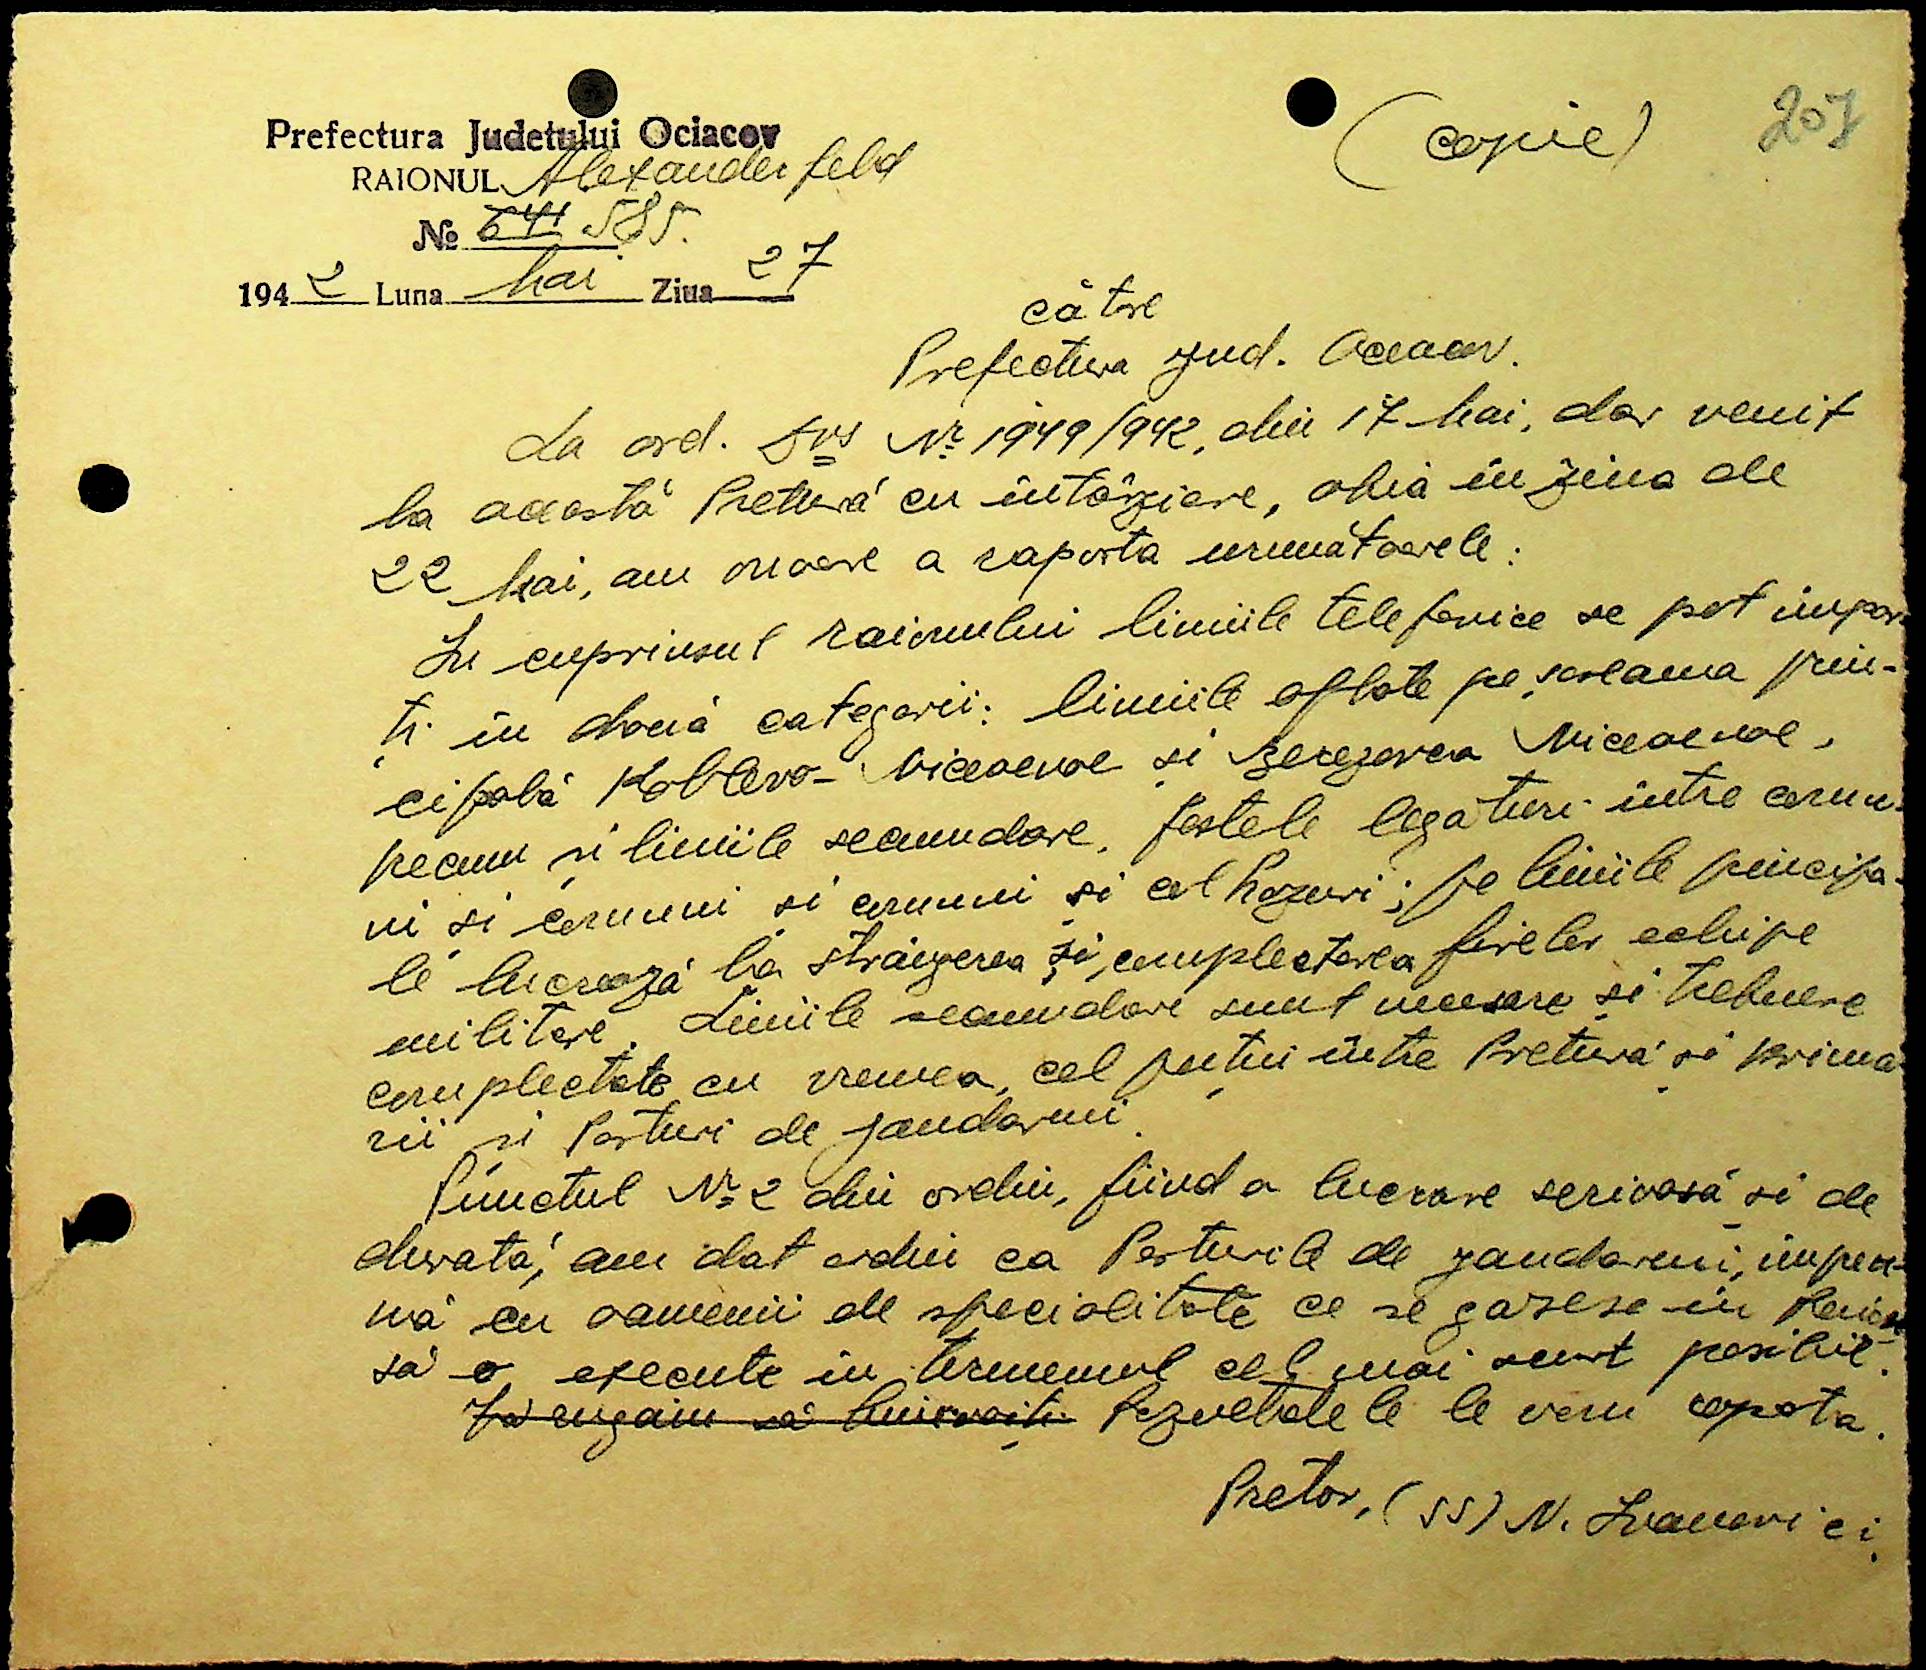 Prefectura Judetului Ociacov
(copie)
207
RAIONUL Alexanderfeld
№ 641 585.
1942 Luna Mai Ziua 27
către
Prefectura Jud. Oceacov.
La ord. Dvs № 1949/942, din 17 Mai, dar venit
la acostă Pretură cu întârziere, abia în ziua de
22 Mai, am onoare a raporta următoarele:
In cuprinsul raionului liniile telefonice se pot împăr-
ți în două categorii: liniile aflate pe șoseaua prin-
cipală Koblevo- și Nicoaevae,
precum și liniile secundare, fostele legături între comu-
ni si comuni si comuni și colhozuri; pe liniile principa-
le lucrează la strângerea și complectarea firelor echipe
militare. Liniile secundare sunt și trebuesc
complectate cu vremea, cel puțin între Pretură și Primă
rii și Posturi de jandarmi.
Punctul № 2 din ordin, fiind o lucrare serioasă și de
durată, am dat ordin ca Posturile de jandarmi, împreu-
nă cu oamenii de specialitate ce se găsesc în
să o execute în termenul cel mai scurt posibil.
Vă rugăm să Rezultatele le vom raporta.
Pretor, (ss) N. Ivanovici